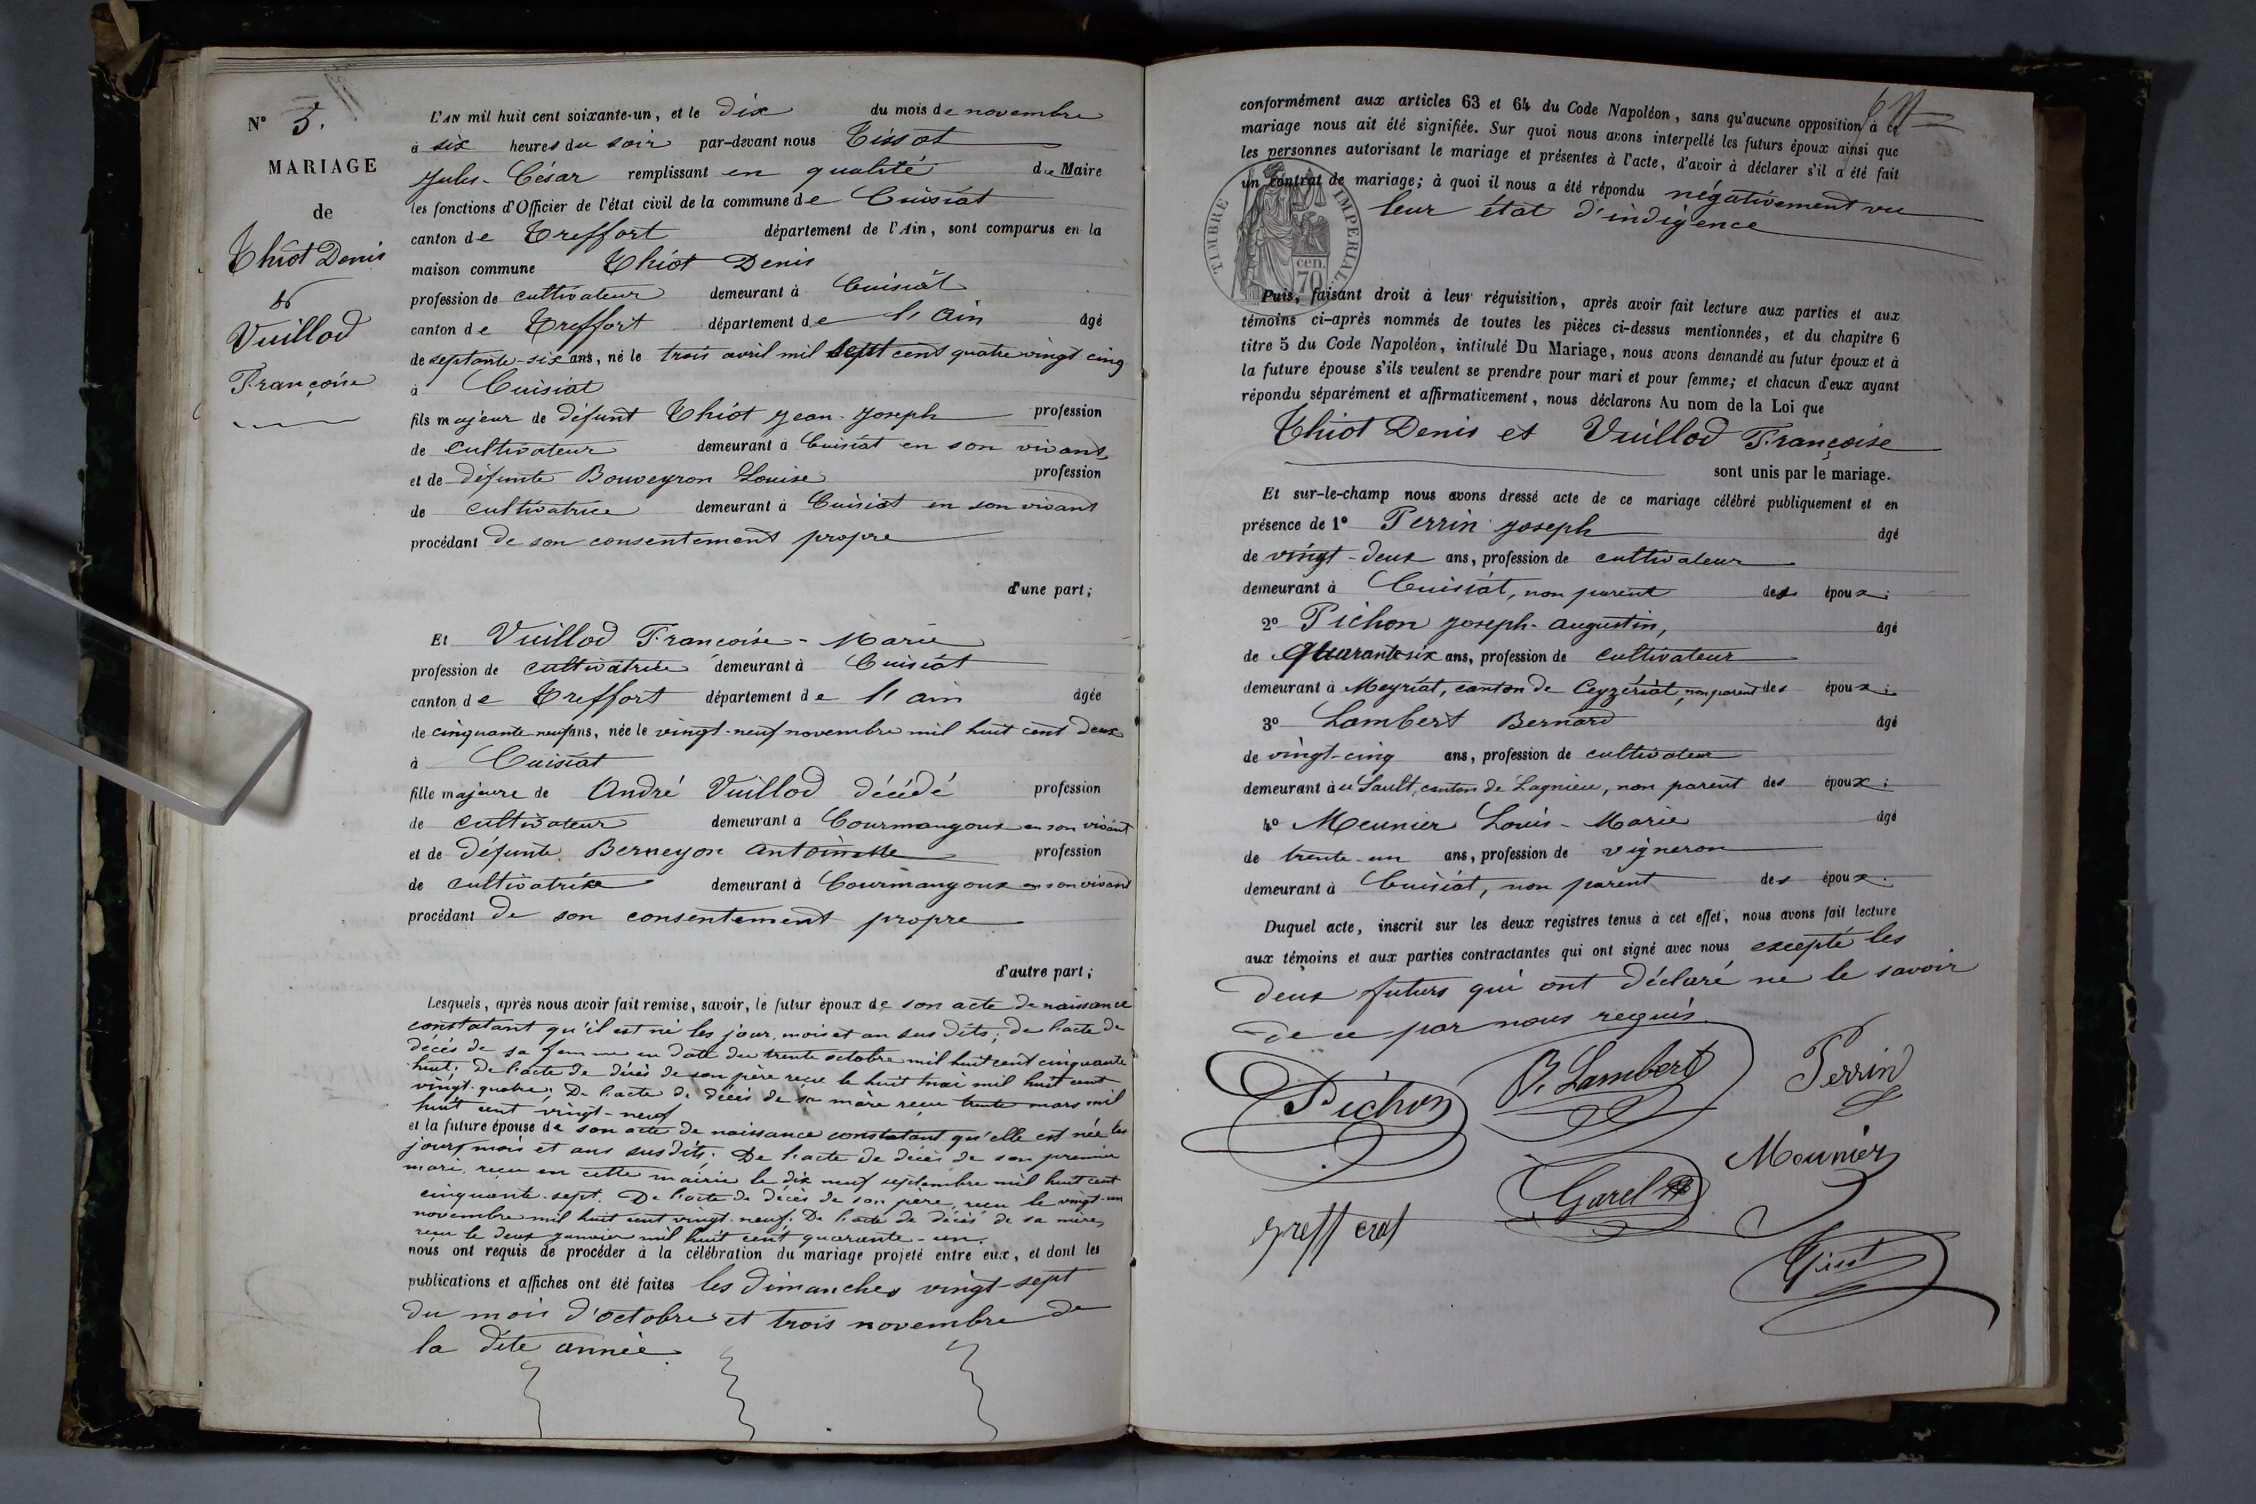 N° 5.
MARIAGE
de
Thiot Denis
&
Vuillod
Françoise
L'AN mil huit cent soixante-un, et le dix du mois de novembre
à six heures du soir par-devant nous Tissot
Jules-César remplissant en qualité de Maire
les fonctions d'Officier de l'état civil de la commune de Cuisiat
canton de Treffort département de l'Ain, sont comparus en la
maison commune Thiot Denis
profession de cultivateur demeurant à Cuisiat
canton de Treffort département de l'Ain âgé
de septante-six ans, né le trois avril mil sept cent quatre vingt cinq
à Cuisiat
fils majeur de défunt Thiot Jean-Joseph profession
de cultivateur demeurant à Cuisiat en son vivant
et de défunte Bouveyron Louise profession
de cultivatrice demeurant à Cuisiat en son vivant
procédant de son consentement propre
d'une part;
Et Vuillod Françoise-Marie
profession de cultivatrice demeurant à Cuisiat
canton de Treffort département de l'ain âgée
de cinquante neuf ans, née le vingt-neuf novembre mil huit cent deux
à Cuisiat
fille majeure de André Vuillod décédé profession
de cultivateur demeurant à Courmangoux en son vivant
et de défunte Berneyon Antoinette profession
de cultivatrice demeurant à Courmangoux en son vivant
procédant de son consentement propre
d'autre part;
Lesquels, après nous avoir fait remise, savoir, le futur époux de son acte de naissance
constatant qu'il est né les jour, mois et an sus dits; de l'acte de
décès de sa femme en date du trente octobre mil huit cent cinquante
huit; De l'acte de décès de son père reçu le huit mai mil huit cent
vingt-quatre; De l'acte de décès de sa mère reçu trente mars mil
huit cent vingt-neuf
et la future épouse de son acte de naissance constatant qu'elle est née les
jours mois et ans susdits; De l'acte de décès de son premier
mari, reçu en cette mairie le dix neuf septembre mil huit cent
cinquante-sept. De l'acte de décès de son père, reçu le vingt-un
novembre mil huit cent vingt-neuf; De l'acte de décès de sa mère,
reçu le deux janvier mil huit cent quarante-un.
nous ont requis de procéder à la célébration du mariage projeté entre eux, et dont les
publications et affiches ont été faites les dimanches vingt-sept
du mois d'octobre et trois novembre de
la dite année
conformément aux articles 63 et 64 du Code Napoléon, sans qu'aucune opposition à ce
mariage nous ait été signifiée. Sur quoi nous avons interpellé les futurs époux ainsi que
les personnes autorisant le mariage et présentes à l'acte, d'avoir à déclarer s'il a été fait
un contrat de mariage; à quoi il nous a été répondu négativement vu
leur état d'indigence
TIMBRE IMPERIAL
cen.
70
Puis, faisant droit à leur réquisition, après avoir fait lecture aux parties et aux
témoins ci-après nommés de toutes les pièces ci-dessus mentionnées, et du chapitre 6
titre 5 du Code Napoléon, intitulé Du Mariage, nous avons demandé au futur époux et à
la future épouse s'ils veulent se prendre pour mari et pour femme; et chacun d'eux ayant
répondu séparément et affirmativement, nous déclarons Au nom de la Loi que
Thiot Denis et Vuillod Françoise
sont unis par le mariage.
Et sur-le-champ nous avons dressé acte de ce mariage célébré publiquement et en
présence de 1° Perrin Joseph âgé
de vingt-deux ans, profession de cultivateur
demeurant à Cuisiat, non parent des époux;
2° Pichon Joseph-Augustin, âgé
de Quarante six ans, profession de cultivateur
demeurant à Meyriat, canton de Ceyzériat, non parent des époux;
3° Lambert Bernard âgé
de vingt-cinq ans, profession de cultivateur
demeurant à u Sault, canton de Lagnieu, non parent des époux;
4° Meunier Louis-Marie âgé
de trente-un ans, profession de vigneron
demeurant à Cuisiat, non parent des époux.
Duquel acte, inscrit sur les deux registres tenus à cet effet, nous avons fait lecture
aux témoins et aux parties contractantes qui ont signé avec nous excepté les
deux futurs qui ont déclaré ne le savoir
de ce par nous requis.
Pichon B. Lambert Perrin
Meunier
Garel